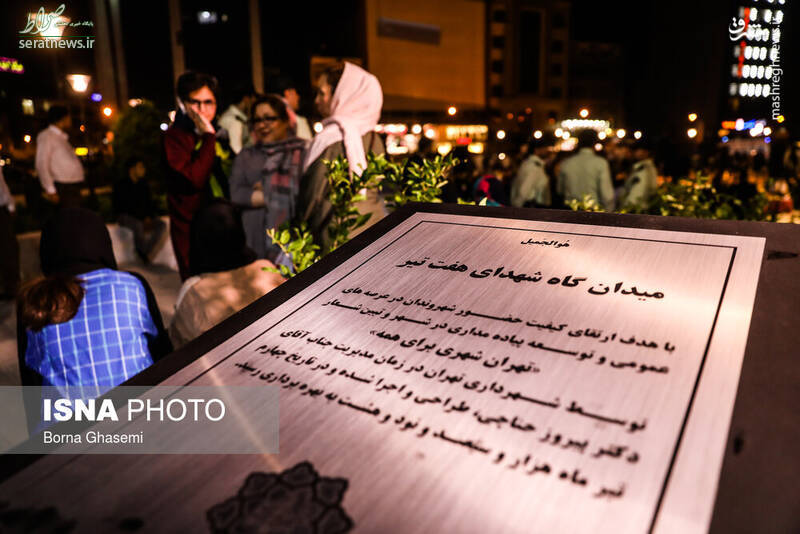 صراط
پایگاه خبری تحلیلی
seratnews.ir
مشرق
mashreghnews.ir
هوالجمیل
میدان گاه شهدای هفت تیر
با هدف ارتقای کیفیت حضور شهروندان در عرصه های
عمومی و توسعه پیاده مداری در شهر و تبین شعار
«تهران شهری برای همه»
توسط شهرداری تهران در زمان مدیریت جناب آقای
دکتر پیروز حناچی، طراحی و اجرا شده و در تاریخ چهارم
تیر ماه هزار و سیصد و نود و هشت به بهره برداری رسید.
ISNA PHOTO
Borna Ghasemi